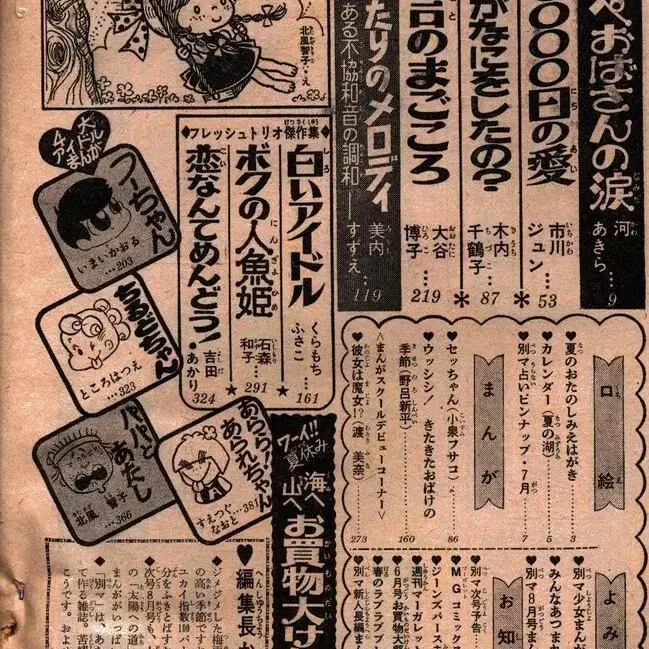 ペおばさんの涙
河あきら…9
000日の愛
市川ジュン…53
がなにをしたの?
木内千鶴子…87
言のまごころ
大谷博子…219
たりのメロディ
ある不協和音の調和――
美内すずえ…119
北風智子・え
◆フレッシュトリオ傑作集◆
白いアイドル
くらもちふさこ…161
ボクの人魚姫
石森和子…291
恋なんてめんどう!
吉田あかり 324
アイドルまんが
つーちゃん
いまいかおる…203
ちるどちゃん
ところはつえ…323
パパとあたし
北風智子…366
あらら?あられちゃん
すえつぐなおと…381
口絵
♥夏のおたのしみえはがき 3
♥カレンダー(夏の湖) 5
♥別マ占いピンナップ・7月 7
まんが
♥セッちゃん(小泉フサコ) 86
♥ウッシシ! きたきたおばけの季節(野呂新平) 160
♥<まんがスクールデビューコーナー>
彼女は魔女!?(渡 美奈) 273
よみ
♥別マ少女まんが
♥みんなあつまれ
♥別マ8月号まん
お知
♥別マ次号予告
♥MGコミックス
♥ジーンズバースキ
♥週刊マーガレット
♥6月号お買物大
♥春のラブラブ
♥別マ新人長編まん
ワーイ!!夏休み
海へ山へお買物大け
♥編集長か
ジメジメした梅
の高い季節です
ユカイ指数100パ
分をふきとばす
次号8月号も、
の「太陽への道
まんががいっぱ
「別マ」は、あ
て作る雑誌。苦
こうです。およ